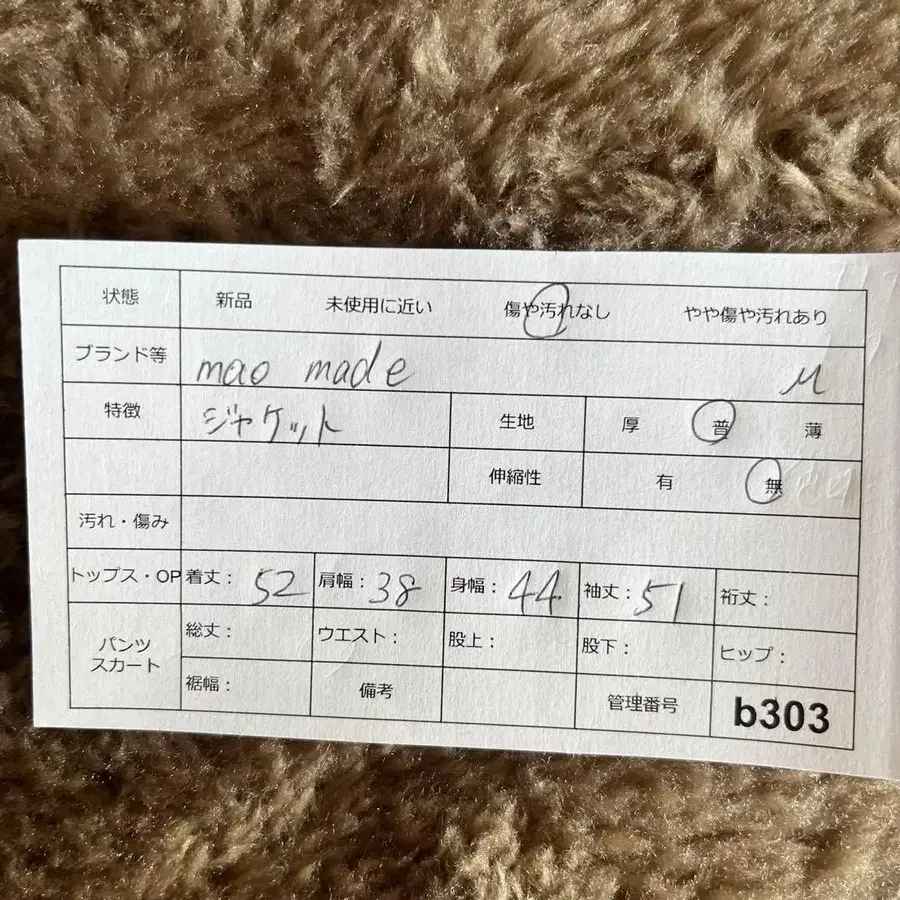 状態 新品 未使用に近い 傷や汚れなし やや傷や汚れあり
ブランド等 mao made M
特徴 ジャケット 生地 厚 普 薄
伸縮性 有 無
汚れ・傷み
トップス・OP 着丈: 52 肩幅: 38 身幅: 44 袖丈: 51 裄丈:
パンツ スカート 総丈: ウエスト: 股上: 股下: ヒップ:
裾幅: 備考 管理番号 b303